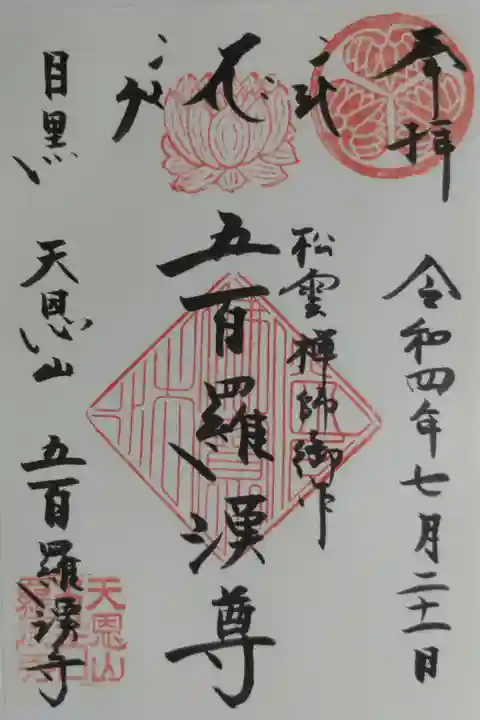 奉拝
令和四年七月二十一日
松雲禅師御作
五百羅漢尊
目黒
天恩山
五百羅漢寺
天恩山